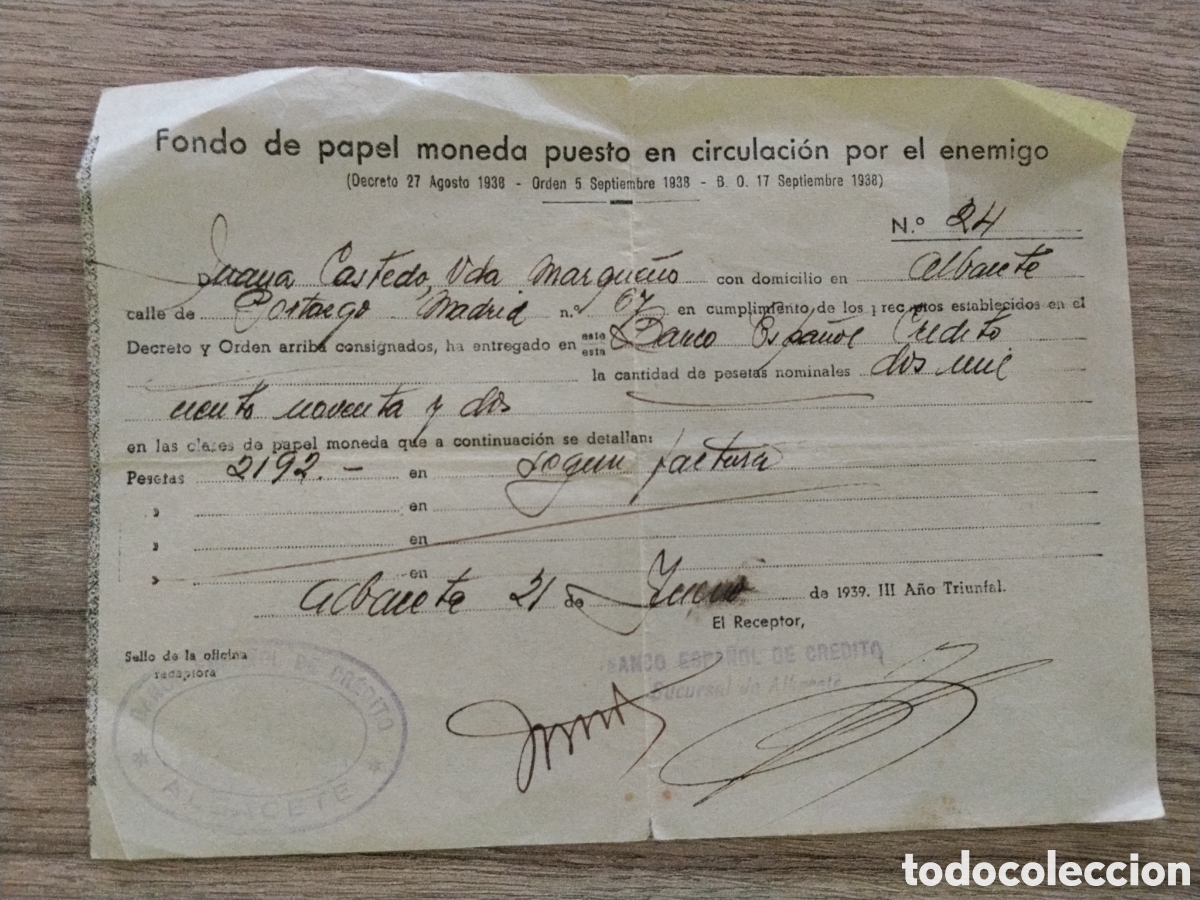 Fondo de papel moneda puesto en circulación por el enemigo
(Decreto 27 Agosto 1938 - Orden 5 Septiembre 1938 - B. O. 17 Septiembre 1938)
N.º 24
D Juana Castedo, Vda Margüeño con domicilio en Albacete
calle de Madrid n.º 67 en cumplimiento de los preceptos establecidos en el
Decreto y Orden arriba consignados, ha entregado en este esta Banco Español Credito
la cantidad de pesetas nominales dos mil
ciento noventa y dos
en las clases de papel moneda que a continuación se detallan:
Pesetas 2192.- en segun factura
» en
» en
» en
Albacete 21 de Junio de 1939. III Año Triunfal.
El Receptor,
Sello de la oficina
receptora
BANCO ESPAÑOL DE CREDITO
Sucursal de Albacete
BANCO ESPAÑOL DE CREDITO
* ALBACETE *
todocoleccion